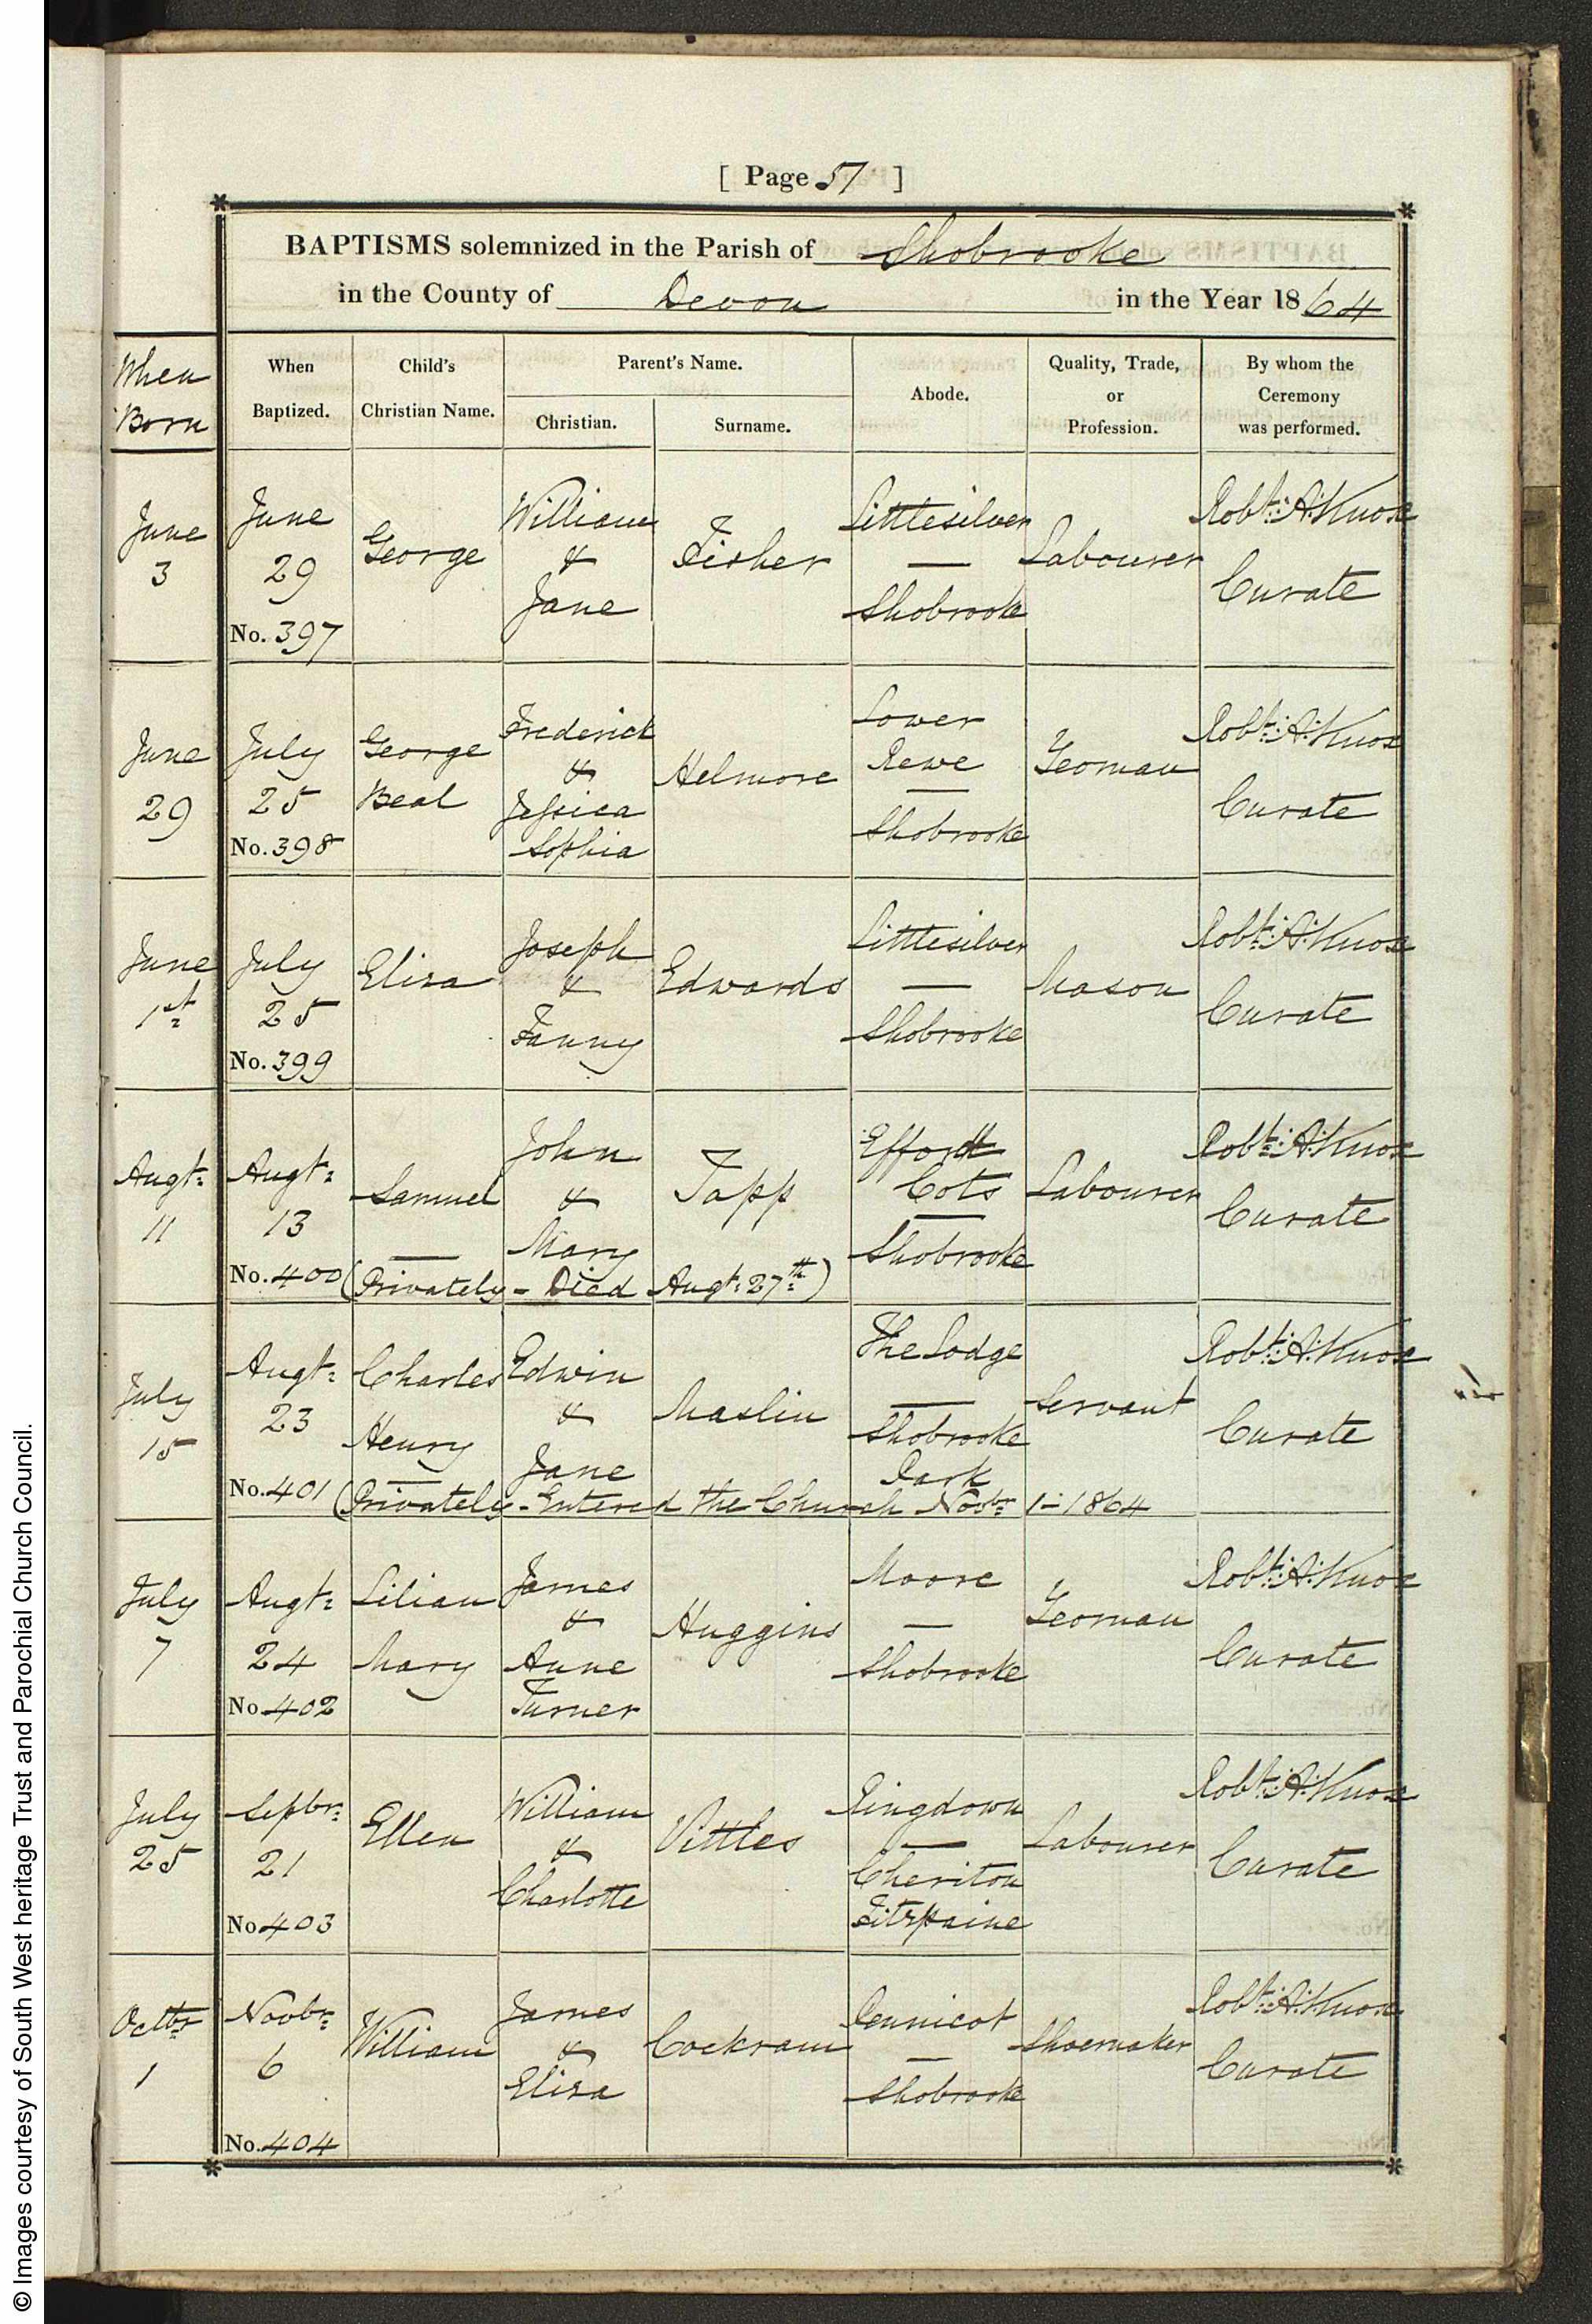 [ Page 51 ]
BAPTISMS solemnized in the Parish of Shobrooke
in the County of Devon in the Year 1864
When Born
When Baptized.
Child's Christian Name.
Parent's Name.
Christian.
Surname.
Abode.
Quality, Trade, or Profession.
By whom the Ceremony was performed.
June
3
June
29
No. 397
George
William
&
Jane
Fisher
Littlesilver
—
Shobrooke
Labourer
Robt: A: Knox
Curate
June
29
July
25
No. 398
George
Beal
Frederick
&
Jessica
Sophia
Helmore
Lower
Rewe
—
Shobrooke
Yeoman
Robt: A: Knox
Curate
June
1st
July
25
No. 399
Eliza
Joseph
&
Fanny
Edwards
Littlesilver
—
Shobrooke
Mason
Robt: A: Knox
Curate
Augt:
11
Augt:
13
No. 400
Samuel
—
John
&
Mary
Tapp
Efford
Cots
—
Shobrooke
Labourer
Robt: A: Knox
Curate
(Privately - Died Augt: 27th)
July
15
Augt:
23
No. 401
Charles
Henry
—
Edwin
&
Jane
Maslin
The Lodge
—
Shobrooke
Park
Servant
Robt: A: Knox
Curate
(Privately - Entered the Church Novbr: 1 - 1864
July
7
Augt:
24
No. 402
Lilian
Mary
James
&
Anne
Turner
Huggins
Moore
—
Shobrooke
Yeoman
Robt: A: Knox
Curate
July
25
Septbr:
21
No. 403
Ellen
William
&
Charlotte
Vittles
Ringdown
—
Cheriton
Fitzpaine
Labourer
Robt: A: Knox
Curate
Octbr:
1
Novbr:
6
No. 404
William
James
&
Eliza
Cockram
Pennicot
—
Shobrooke
Shoemaker
Robt: A: Knox
Curate
© Images courtesy of South West heritage Trust and Parochial Church Council.